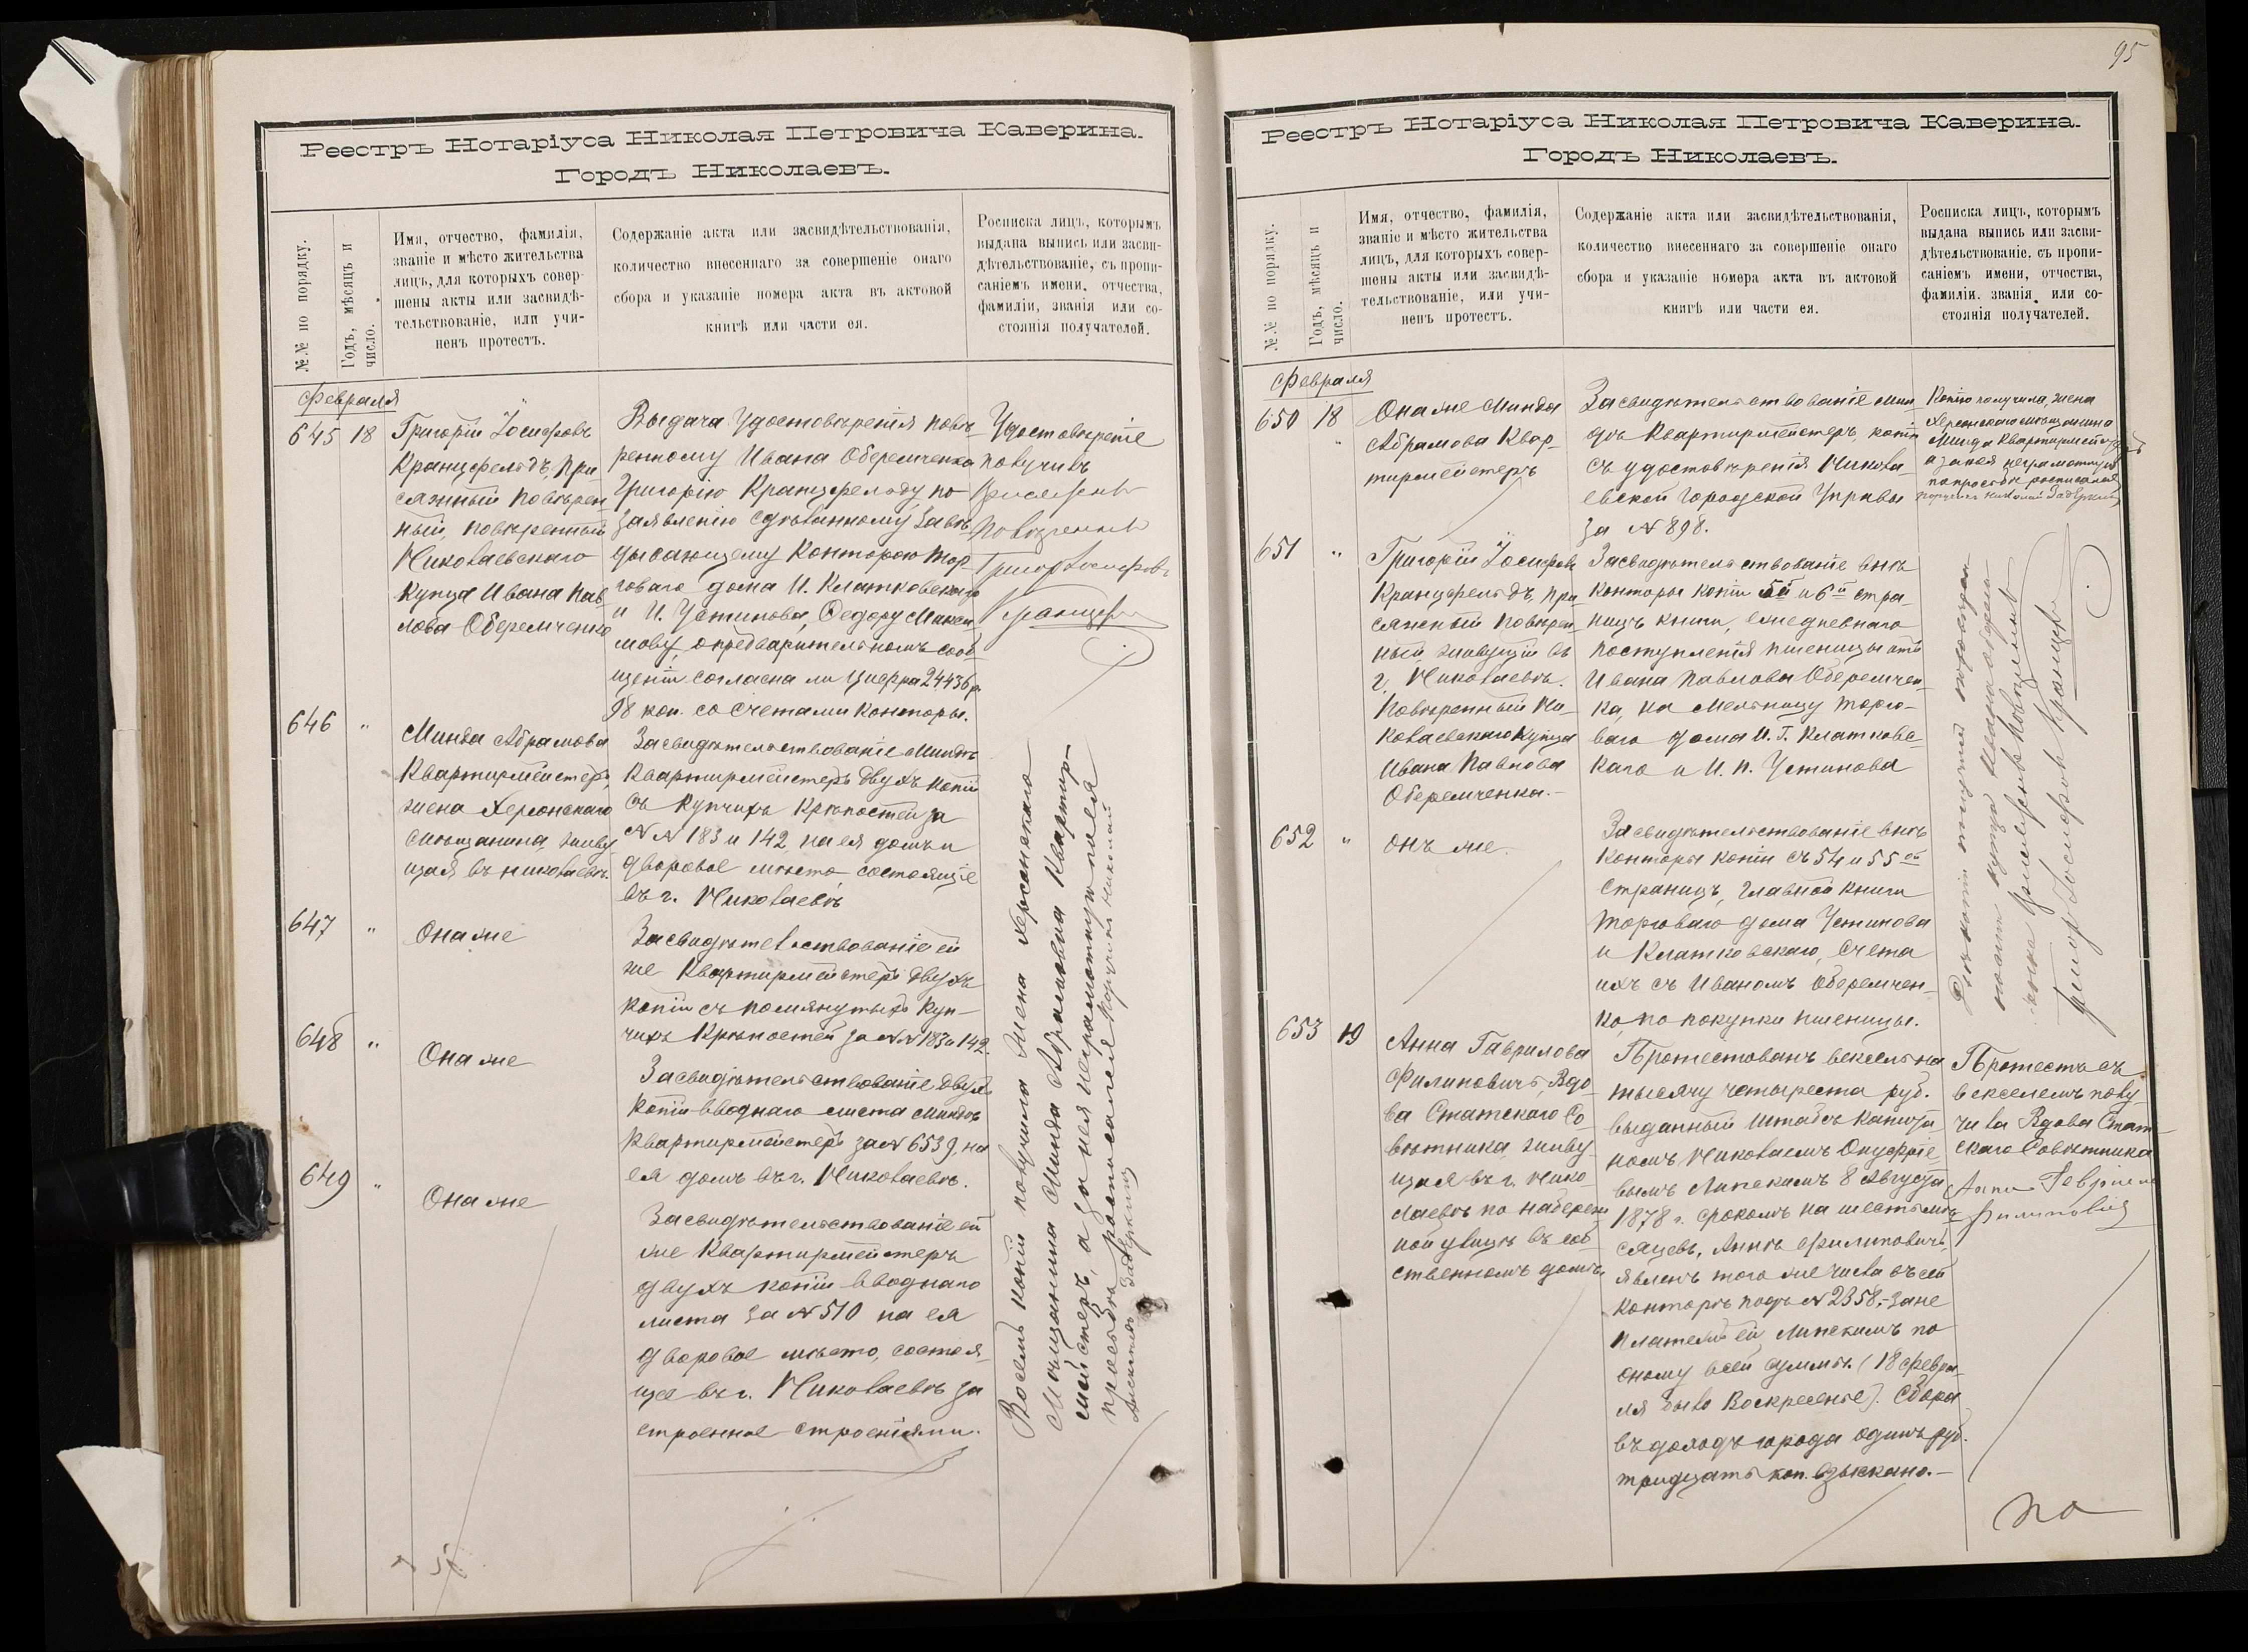 Реестръ Нотаріуса Николая Петровича Каверина.
Городъ Николаевъ.
№№ по порядку.
Годъ, мѣсяцъ и
число.
Имя, отчество, фамилія,
званіе и мѣсто жительства
лицъ, для которыхъ совер-
шены акты или засвидѣ-
тельствованіе, или учи-
ненъ протестъ.
Содержаніе акта или засвидѣтельствованія,
количество внесеннаго за совершеніе онаго
сбора и указаніе номера акта въ актовой
книгѣ или части ея.
Росписка лицъ, которымъ
выдана выпись или засви-
дѣтельствованіе, съ пропи-
саніемъ имени, отчества,
фамиліи, званія или со-
стоянія получателей.
Февраля
645 18
Григорій Іосифовъ
Кранцфельдъ, при
сяжный повѣрен
ный, повѣренный
Николаевскаго
купца Ивана Пав
лова Оберемченко
Выдача удостовѣренія повѣ-
ренному Ивана Оберемченко
Григорію Кранцфельду, по
заявленію сдѣланному завѣ
дывающему Конторою тор
говаго дома И. Клатковскаго
и И. Устинова, Ѳедору Макси
мову, о предварительномъ сооб
щеніи согласна ли цифра 24436 р.
98 коп. со счетами конторы.
Удостовѣреніе
получилъ
Присяжный
повѣренный
Григор Іосифовъ
Кранцф
646 "
Минда Абрамова
Квартирмейстеръ,
жена Херсонскаго
мѣщанина живу
щая въ Николаевѣ.
Засвидѣтельствованіе Миндѣ
Квартирмейстеръ двухъ копій
съ купчихъ крѣпостей за
№№ 183 и 142 на ея домъ и
дворовое мѣсто состоящіе
въ г. Николаевѣ
647 "
Она же
Засвидѣтельствованіе ей
же Квартирмейстеръ двухъ
копій съ помянутыхъ куп-
чихъ крѣпостей за №№ 183 и 142.
648 "
Она же
Засвидѣтельствованіе двухъ
копій вводнаго листа Миндѣ
Квартирмейстеръ за № 6539, на
ея домъ въ г. Николаевѣ.
649 "
Она же
Засвидѣтельствованіе ей
же Квартирмейстеръ
двухъ копій вводнаго
листа за № 510 на ея
дворовое мѣсто, состоя
щее въ г. Николаевѣ за
строенное строеніями.
Восемь копій получила жена Херсонскаго
Мѣщанина Минда Абрамовна Квартир-
мейстеръ, а за нея неграмотную по ея
просьбѣ росписался поручикъ Николай
95
Реестръ Нотаріуса Николая Петровича Каверина.
Городъ Николаевъ.
№№ по порядку.
Годъ, мѣсяцъ и
число.
Имя, отчество, фамилія,
званіе и мѣсто жительства
лицъ, для которыхъ совер-
шены акты или засвидѣ-
тельствованіе, или учи-
ненъ протестъ.
Содержаніе акта или засвидѣтельствованія,
количество внесеннаго за совершеніе онаго
сбора и указаніе номера акта въ актовой
книгѣ или части ея.
Росписка лицъ, которымъ
выдана выпись или засви-
дѣтельствованіе. съ пропи-
саніемъ имени, отчества,
фамиліи. званія или со-
стоянія получателей.
Февраля
650 18
Она же Минда
Абрамова Квар-
тирмейстеръ
Засвидѣтельствованіе Мин
дѣ Квартирмейстеръ, копіи
съ удостовѣренія Никола
евской Городской Управы
за № 898.
Копію получила, жена
Херсонскаго мѣщанина
Минда Квартирмейстеръ
а за нея неграмотную
по просьбѣ росписался
поручикъ Николай
651 "
Григорій Іосифовъ
Кранцфельдъ, при
сяжный повѣрен-
ный живущій въ
г. Николаевѣ.
Повѣренный Ни-
колаевскаго купца
Ивана Павлова
Оберемченка.-
Засвидѣтельствованіе внѣ
конторы копіи 5й и 6й стра-
ницъ книги, ежедневнаго
поступленія пшеницы отъ
Ивана Павлова Оберемчен-
ка, на мельницу торго-
ваго дома И. Г. Клатковс-
каго и И. П. Устинова
652 "
Онъ же.
Засвидѣтельствованіе внѣ
конторы копіи съ 54 и 55 ой
страницъ, главной книги
торговаго дома Устинова
и Клатковскаго, счета
ихъ съ Иваномъ Оберемчен-
ко, по покупки пшеницы.
купца Ивана
повѣренный
Григор Іосифов Кранцф
653 19
Анна Гаврилова
Филиповичъ, Вдо
ва Статскаго Со-
вѣтника, живу-
щая въ г. Нико
лаевѣ по набереж
ной улицѣ въ соб
ственномъ домѣ.
Протестованъ вексель на
тысячу четыреста руб.
выданный Штабсъ Капита
номъ Николаемъ Онуфріе
вымъ Липскимъ 8 Августа
1878 г. срокомъ на шесть мѣ
сяцевъ, Аннѣ Филиповичъ,
явленъ того же числа въ сей
конторѣ подъ № 2358,- за не
платежъ ей, Липскимъ по
оному всей суммы. (18 февра-
ля было Воскресенье). Сбора
въ доходъ города одинъ руб.
тридцать коп. взыскано.-
Протестъ съ
векселемъ полу
чила Вдова Стат-
скаго Совѣтника
Анна Гаврило
Филиповичъ